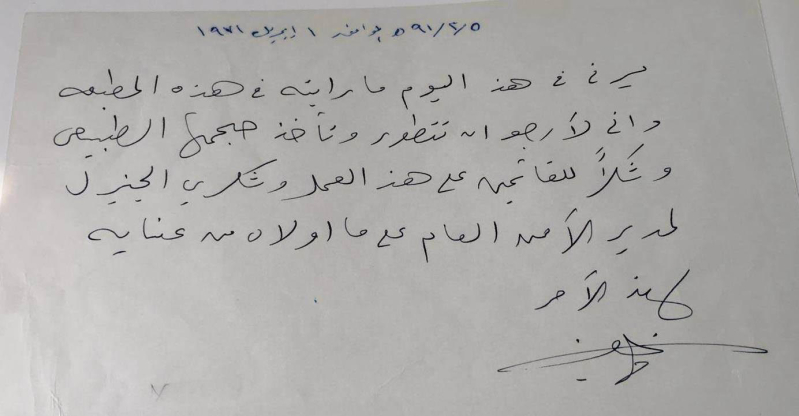 ٩١/٢/٥ ه يوافق ١ ابريل ١٩٧١
سرني في هذ اليوم ما رايته في هذه المطبعه
واني لأرجو ان تتطور وتأخذ حجمها الطبيعي
وشكراً للقائمين على هذ العمل وشكري الجزيل
لمدير الأمن العام على ما اولاه من عنايه
لهذ الأمر